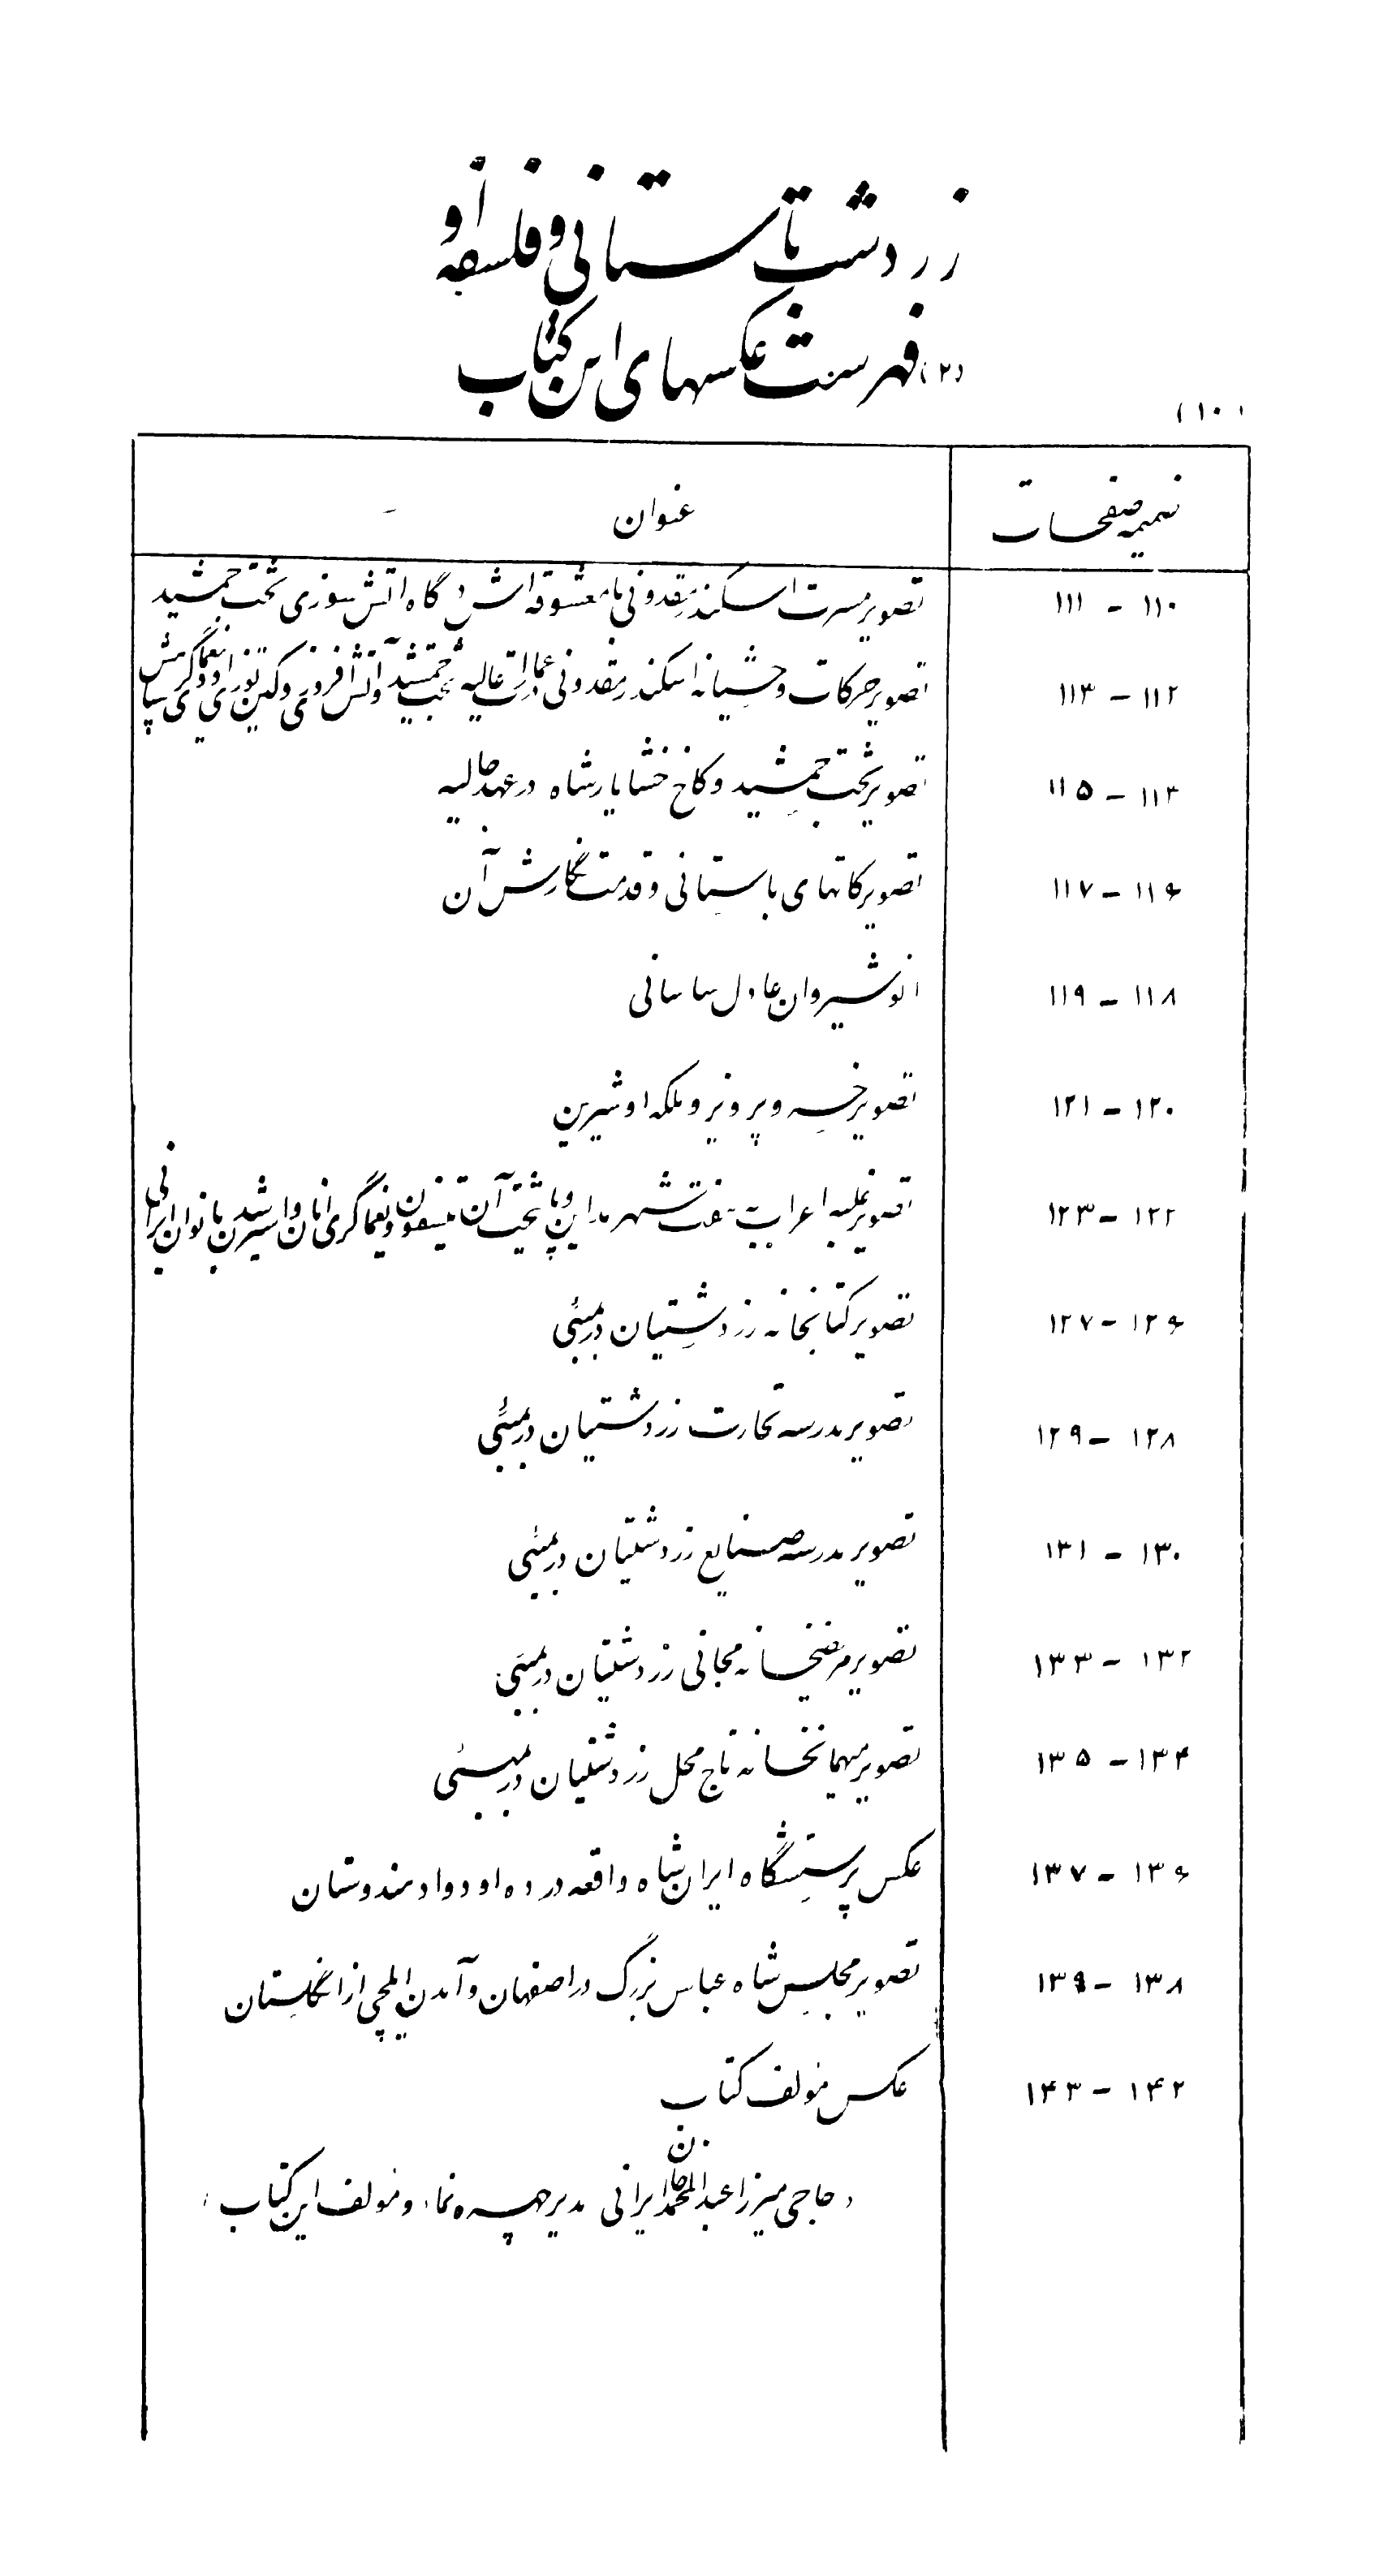 زردشت باستانی و فلسفه او
(۲) فهرست عکسهای این کتاب
(۱۰)
ضمیمه صفحات عنوان
۱۱۰ - ۱۱۱ تصویر مسرت اسکندر مقدونی با معشوقه اش در گاه اتش سوزی تخت جمشید
۱۱۲ - ۱۱۳ تصویر حرکات وحشیانه اسکندر مقدونی در عمارات عالیه تخت جمشید و آتش افروزی و کین توزی او و یغماگری سپاهش
۱۱۴ - ۱۱۵ تصویر تخت جمشید و کاخ خشایارشاه در عهد حالیه
۱۱۶ - ۱۱۷ تصویر گاتهای باستانی و قدمت نگارش آن
۱۱۸ - ۱۱۹ انوشیروان عادل ساسانی
۱۲۰ - ۱۲۱ تصویر خسرو پرویز و ملکه او شیرین
۱۲۲ - ۱۲۳ تصویر غلبه اعراب بهفت شهر مداین و پایتخت آن تیسفون و یغماگری انان و اسیر شدن بانوان ایرانی
۱۲۶ - ۱۲۷ تصویر کتابخانه زردشتیان در بمبئی
۱۲۸ - ۱۲۹ تصویر مدرسه تجارت زردشتیان در بمبئی
۱۳۰ - ۱۳۱ تصویر مدرسه صنایع زردشتیان در بمبئی
۱۳۲ - ۱۳۳ تصویر مریضخانه مجانی زردشتیان در بمبئی
۱۳۴ - ۱۳۵ تصویر میهمانخانه تاج محل زردشتیان در بمبئی
۱۳۶ - ۱۳۷ عکس پرستشگاه ایران شاه واقعه در ده اودوادهندوستان
۱۳۸ - ۱۳۹ تصویر مجلس شاه عباس بزرگ در اصفهان و آمدن ایلچی از انگلستان
۱۴۲ - ۱۴۳ عکس مولف کتاب
(حاجی میرزا عبدالمحمد خان ایرانی مدیر چهره نما، و مولف این کتاب)